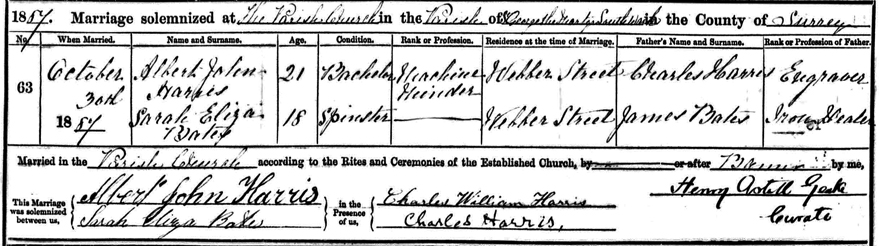 1887. Marriage solemnized at The Parish Church in the Parish of St George the Martyr Southwark in the County of Surrey
No. When Married. Name and Surname. Age. Condition. Rank or Profession. Residence at the time of Marriage. Father's Name and Surname. Rank or Profession of Father.
63 October 30th 1887 Albert John Harris 21 Bachelor Machine Minder Webber Street Charles Harris Engraver
Sarah Eliza Bates 18 Spinster Webber Street James Bates Iron Dealer
Married in the Parish Church according to the Rites and Ceremonies of the Established Church, by or after Banns by me,
This Marriage was solemnized between us, Albert John Harris
Sarah Eliza Bates
in the Presence of us, Charles William Harris
Charles Harris,
Henry Curate